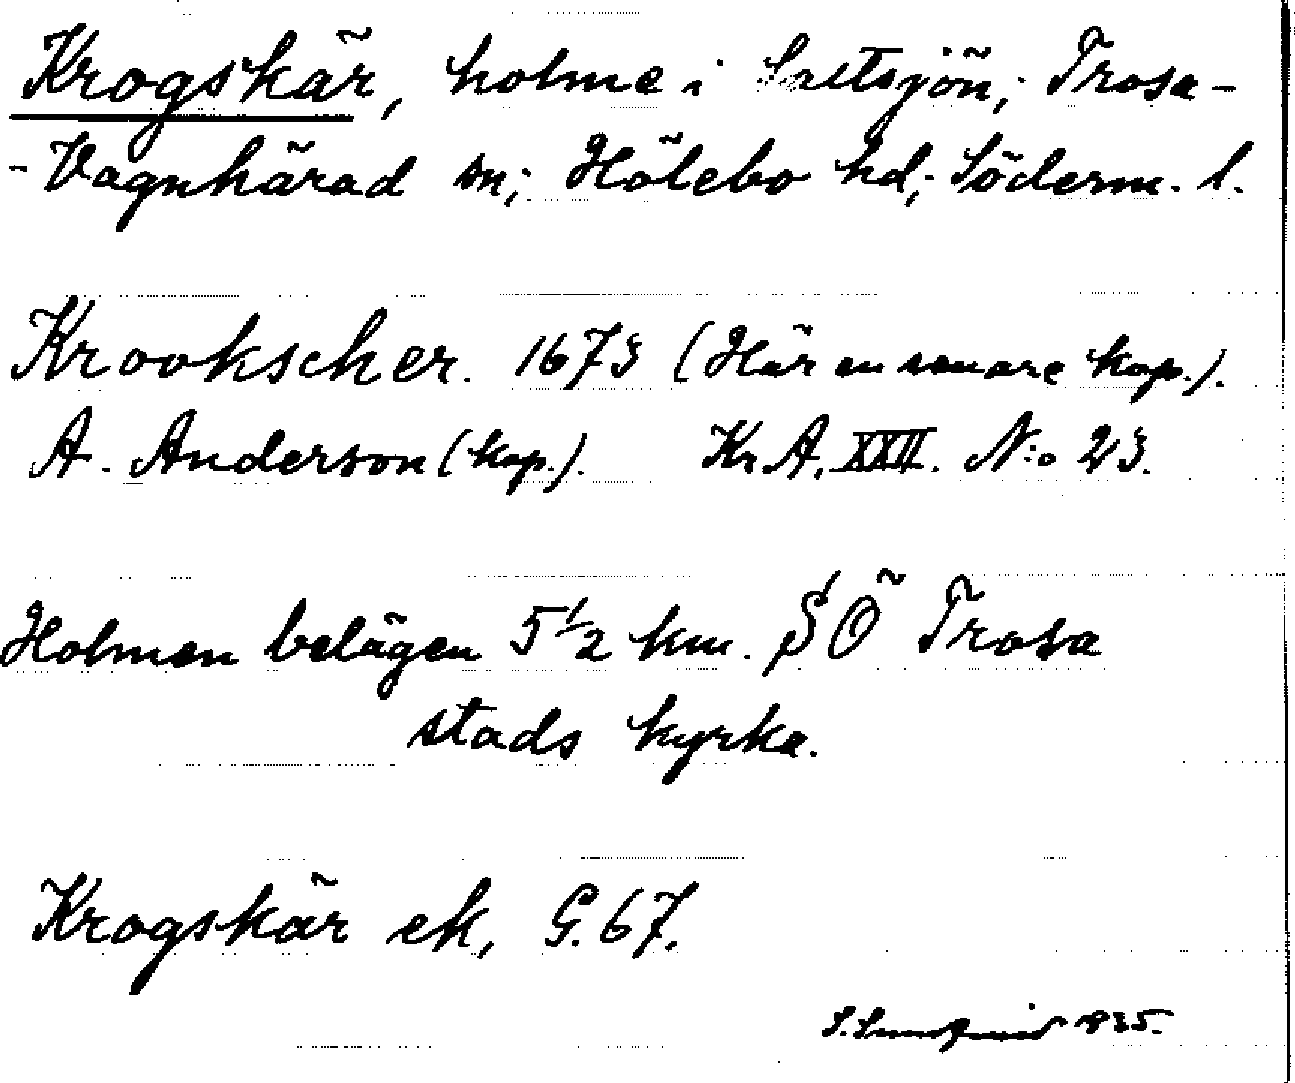 Krogskär, holme i Saltsjön; Trosa-
-Vagnhärad sn; Hölebo hd; Söderm. l.
Krookscher. 1673 (Här en senare kop.).
A. Anderson (kop.). Kr. A. XXII. N:o 23.
Holmen belägen 5 1/2 km. SÖ Trosa
stads kyrka.
Krogskär ek, G. 67.
S. Lundquist 1935.